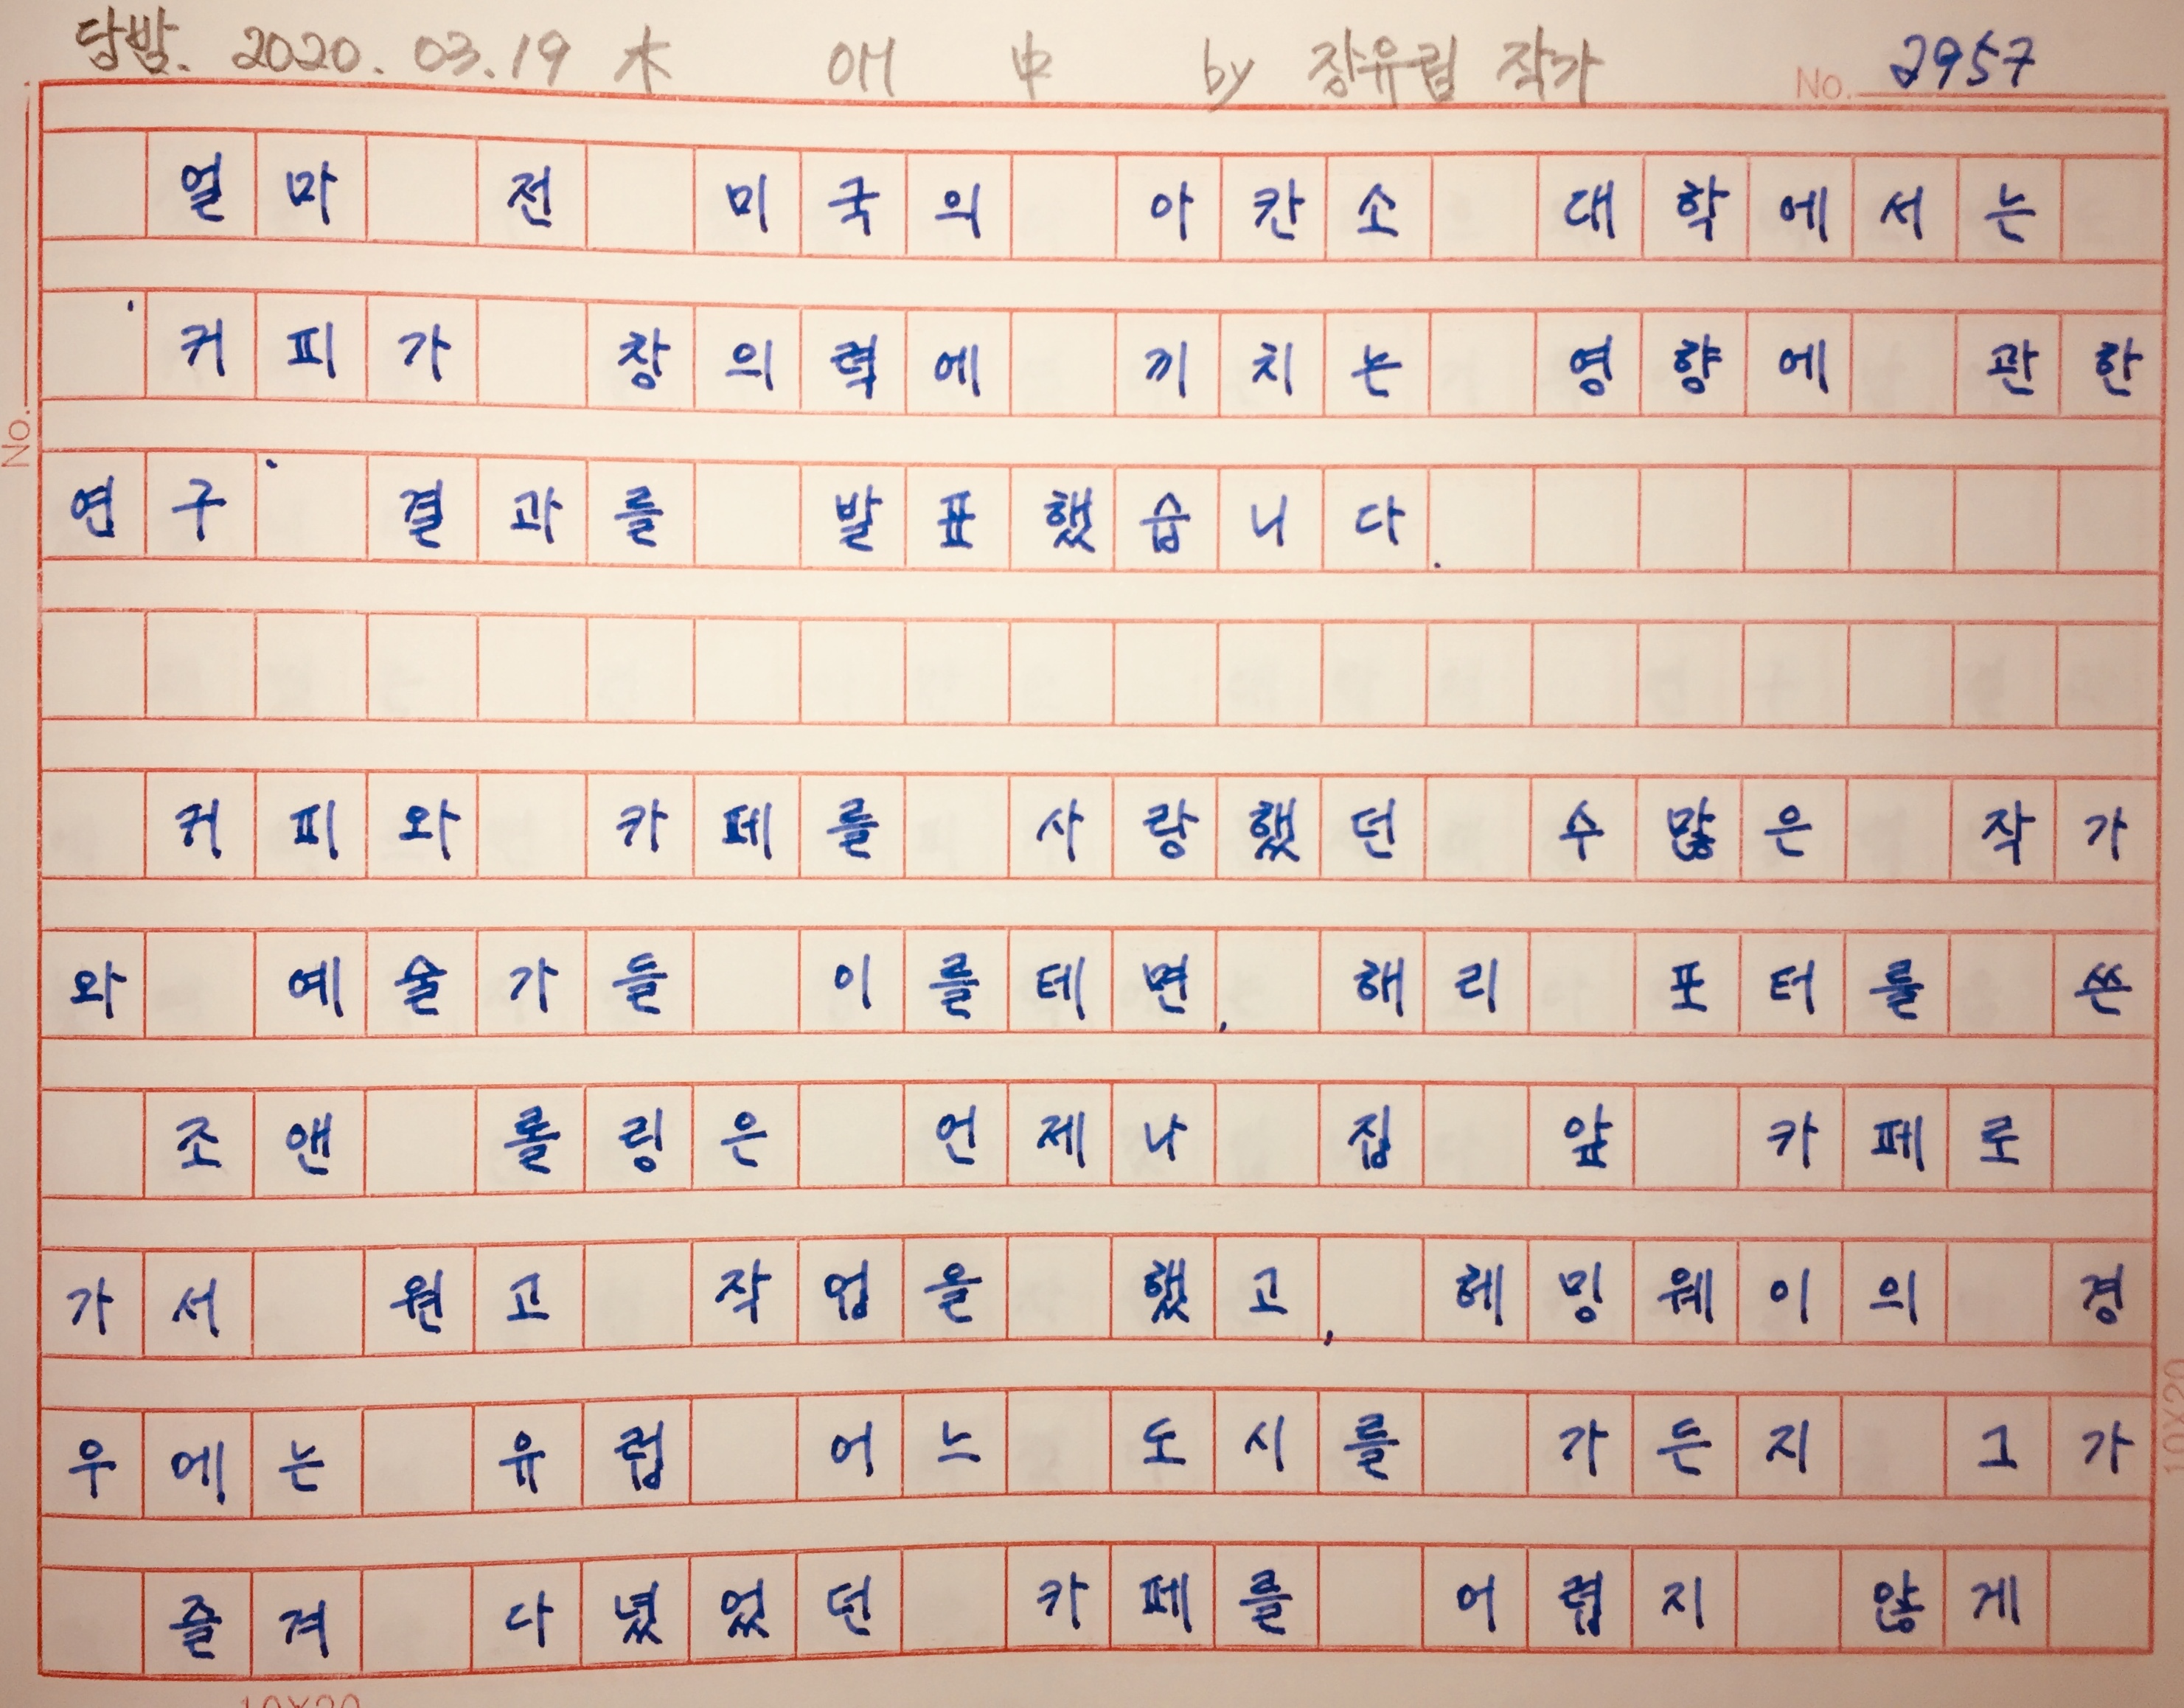 담밤. 2020. 03. 19 木 애 中 by 장유림 작가 No. 2957
얼마 전 미국의 아칸소 대학에서는
'커피가 창의력에 끼치는 영향에 관한
연구' 결과를 발표했습니다.
커피와 카페를 사랑했던 수많은 작가
와 예술가들 이를테면, 해리 포터를 쓴
조앤 롤링은 언제나 집 앞 카페로
가서 원고 작업을 했고, 헤밍웨이의 경
우에는 유럽 어느 도시를 가든지 그가
즐겨 다녔었던 카페를 어렵지 않게
No.
10X20
10X20